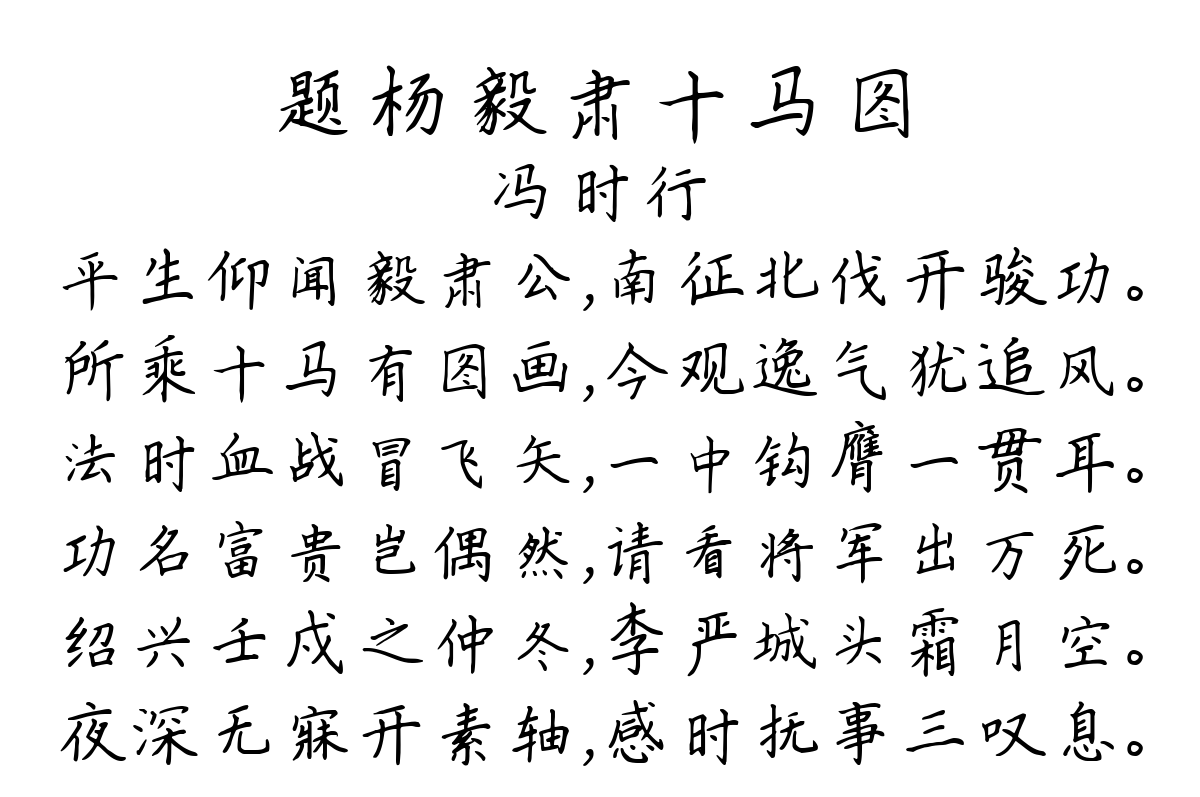 题杨毅肃十马图
冯时行
平生仰闻毅肃公,南征北伐开骏功。
所乘十马有图画,今观逸气犹追风。
法时血战冒飞矢,一中钩膺一贯耳。
功名富贵岂偶然,请看将军出万死。
绍兴壬戍之仲冬,李严城头霜月空。
夜深无寐开素轴,感时抚事三叹息。